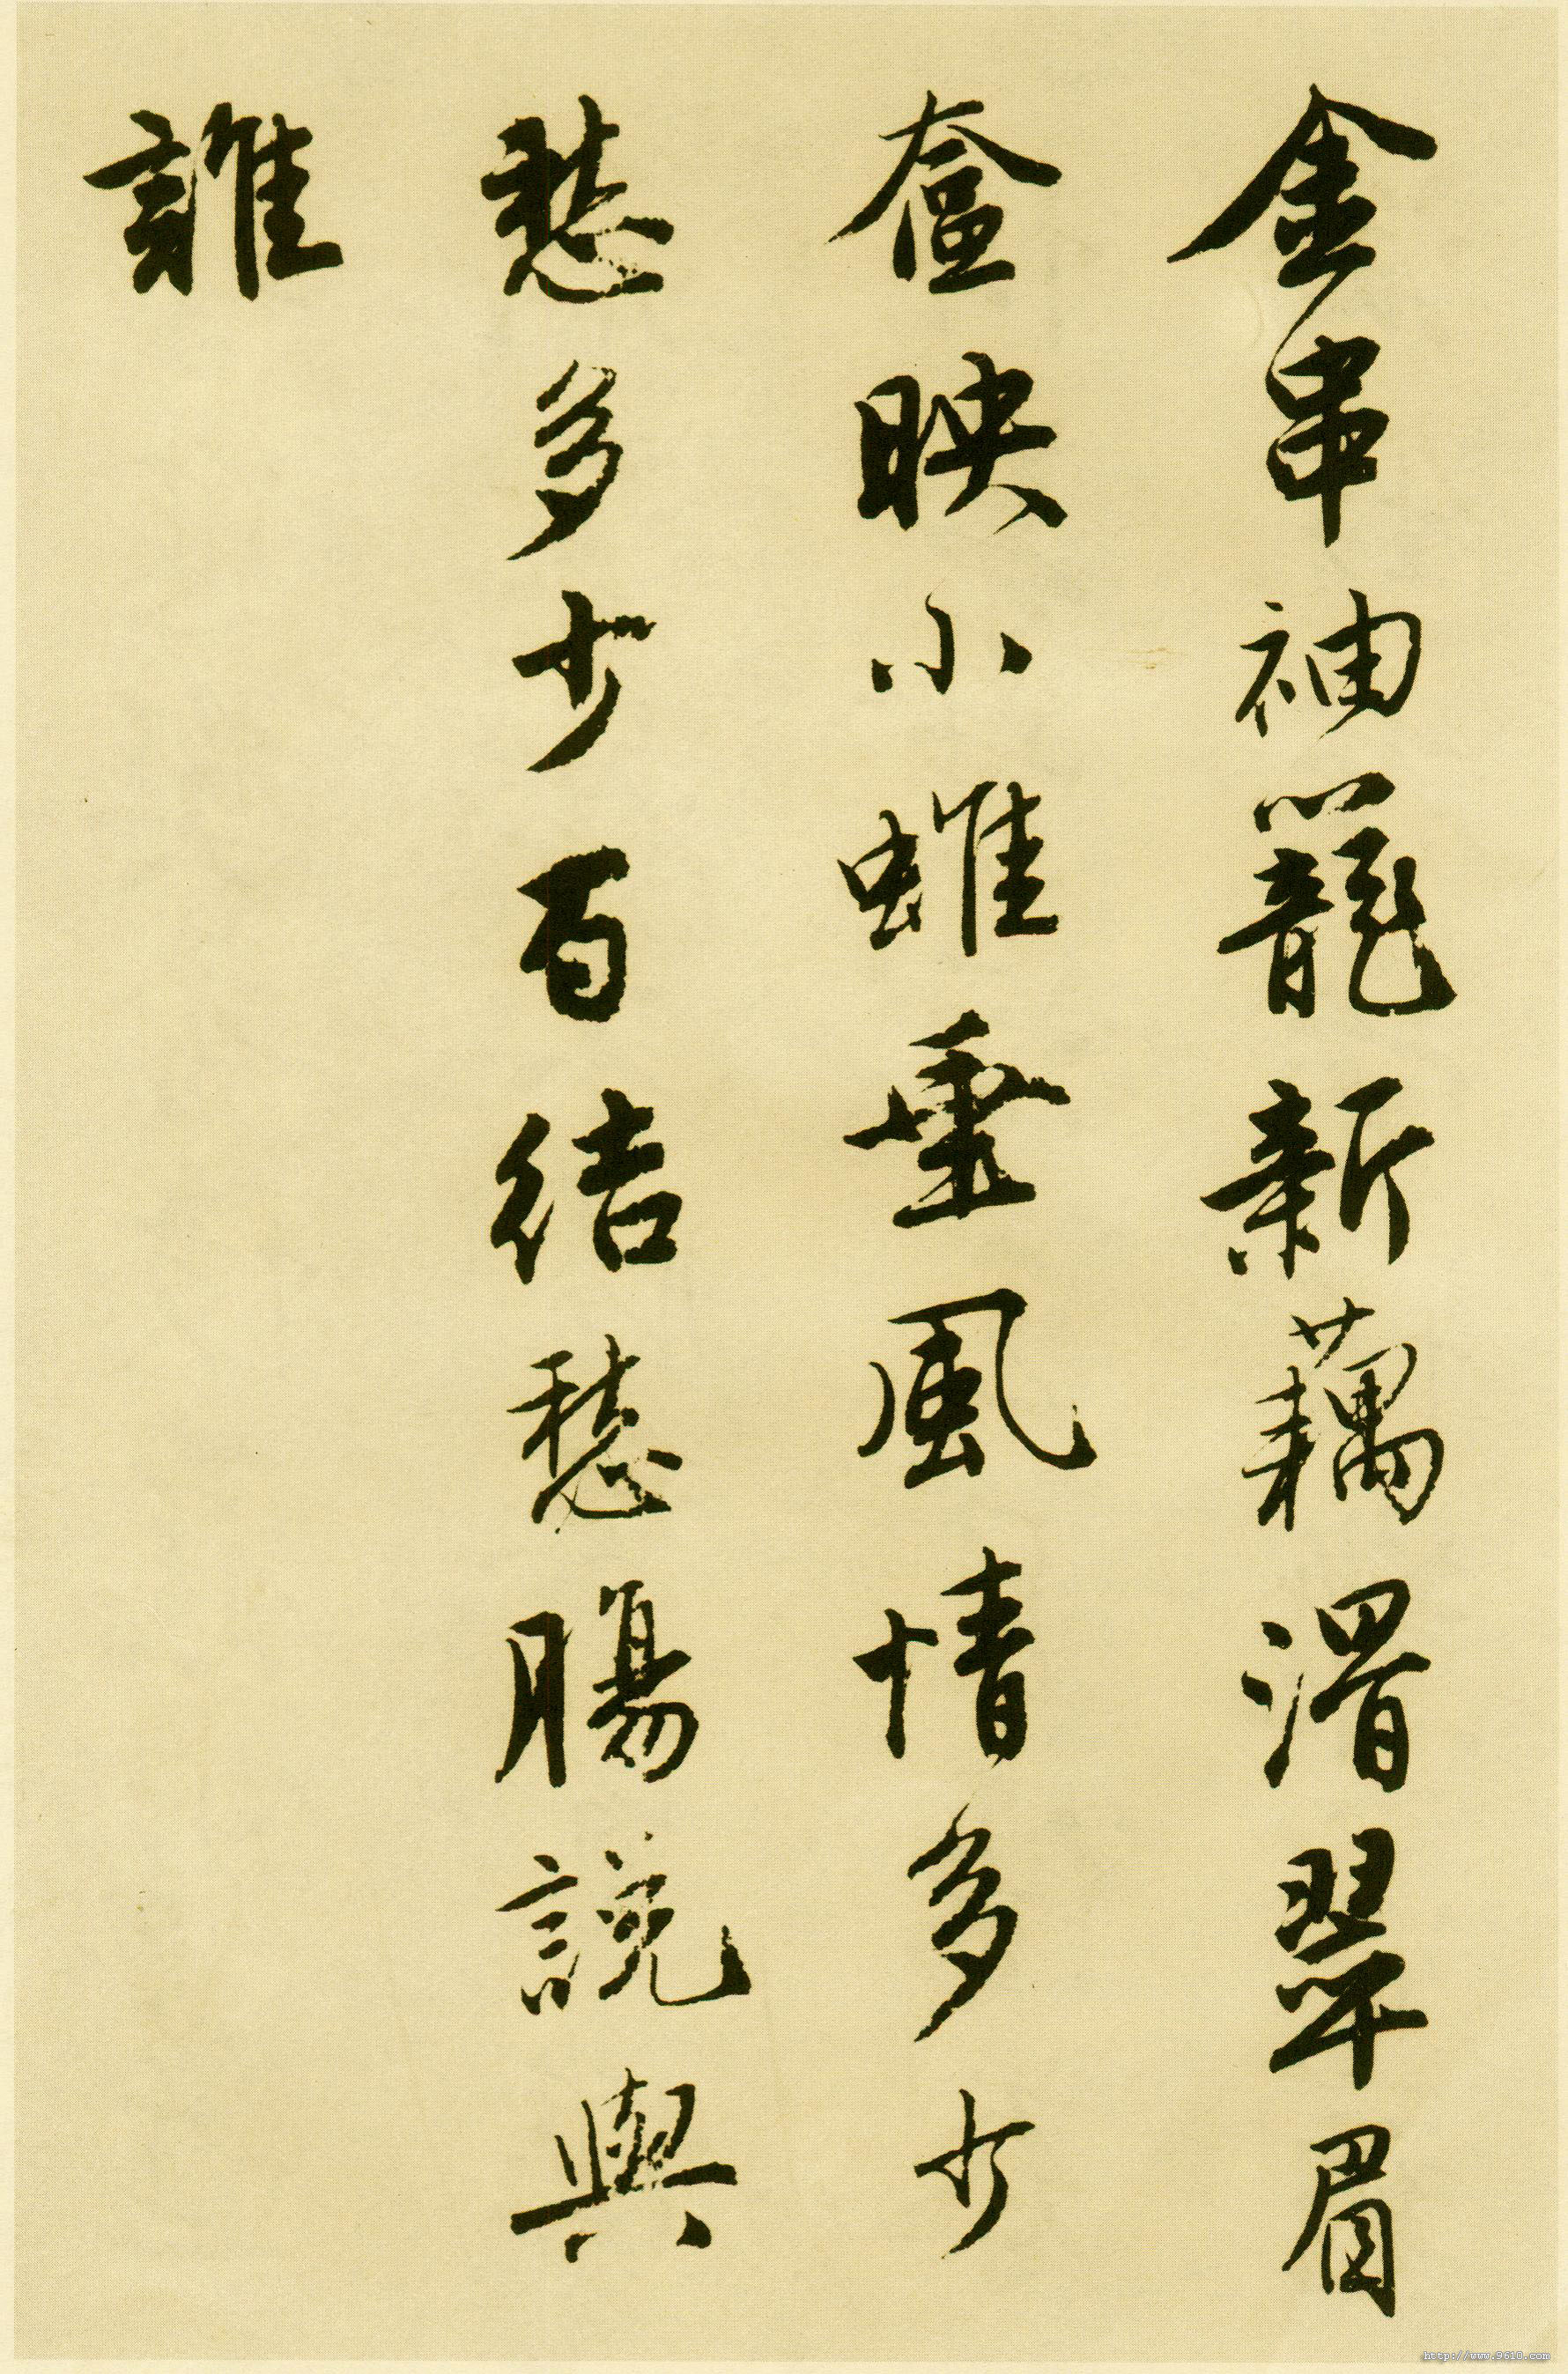 金串袖籠新藕滑翠眉
奩映小蜼垂風情多少
愁多少百結愁腸說與
誰
http://www.9610.com